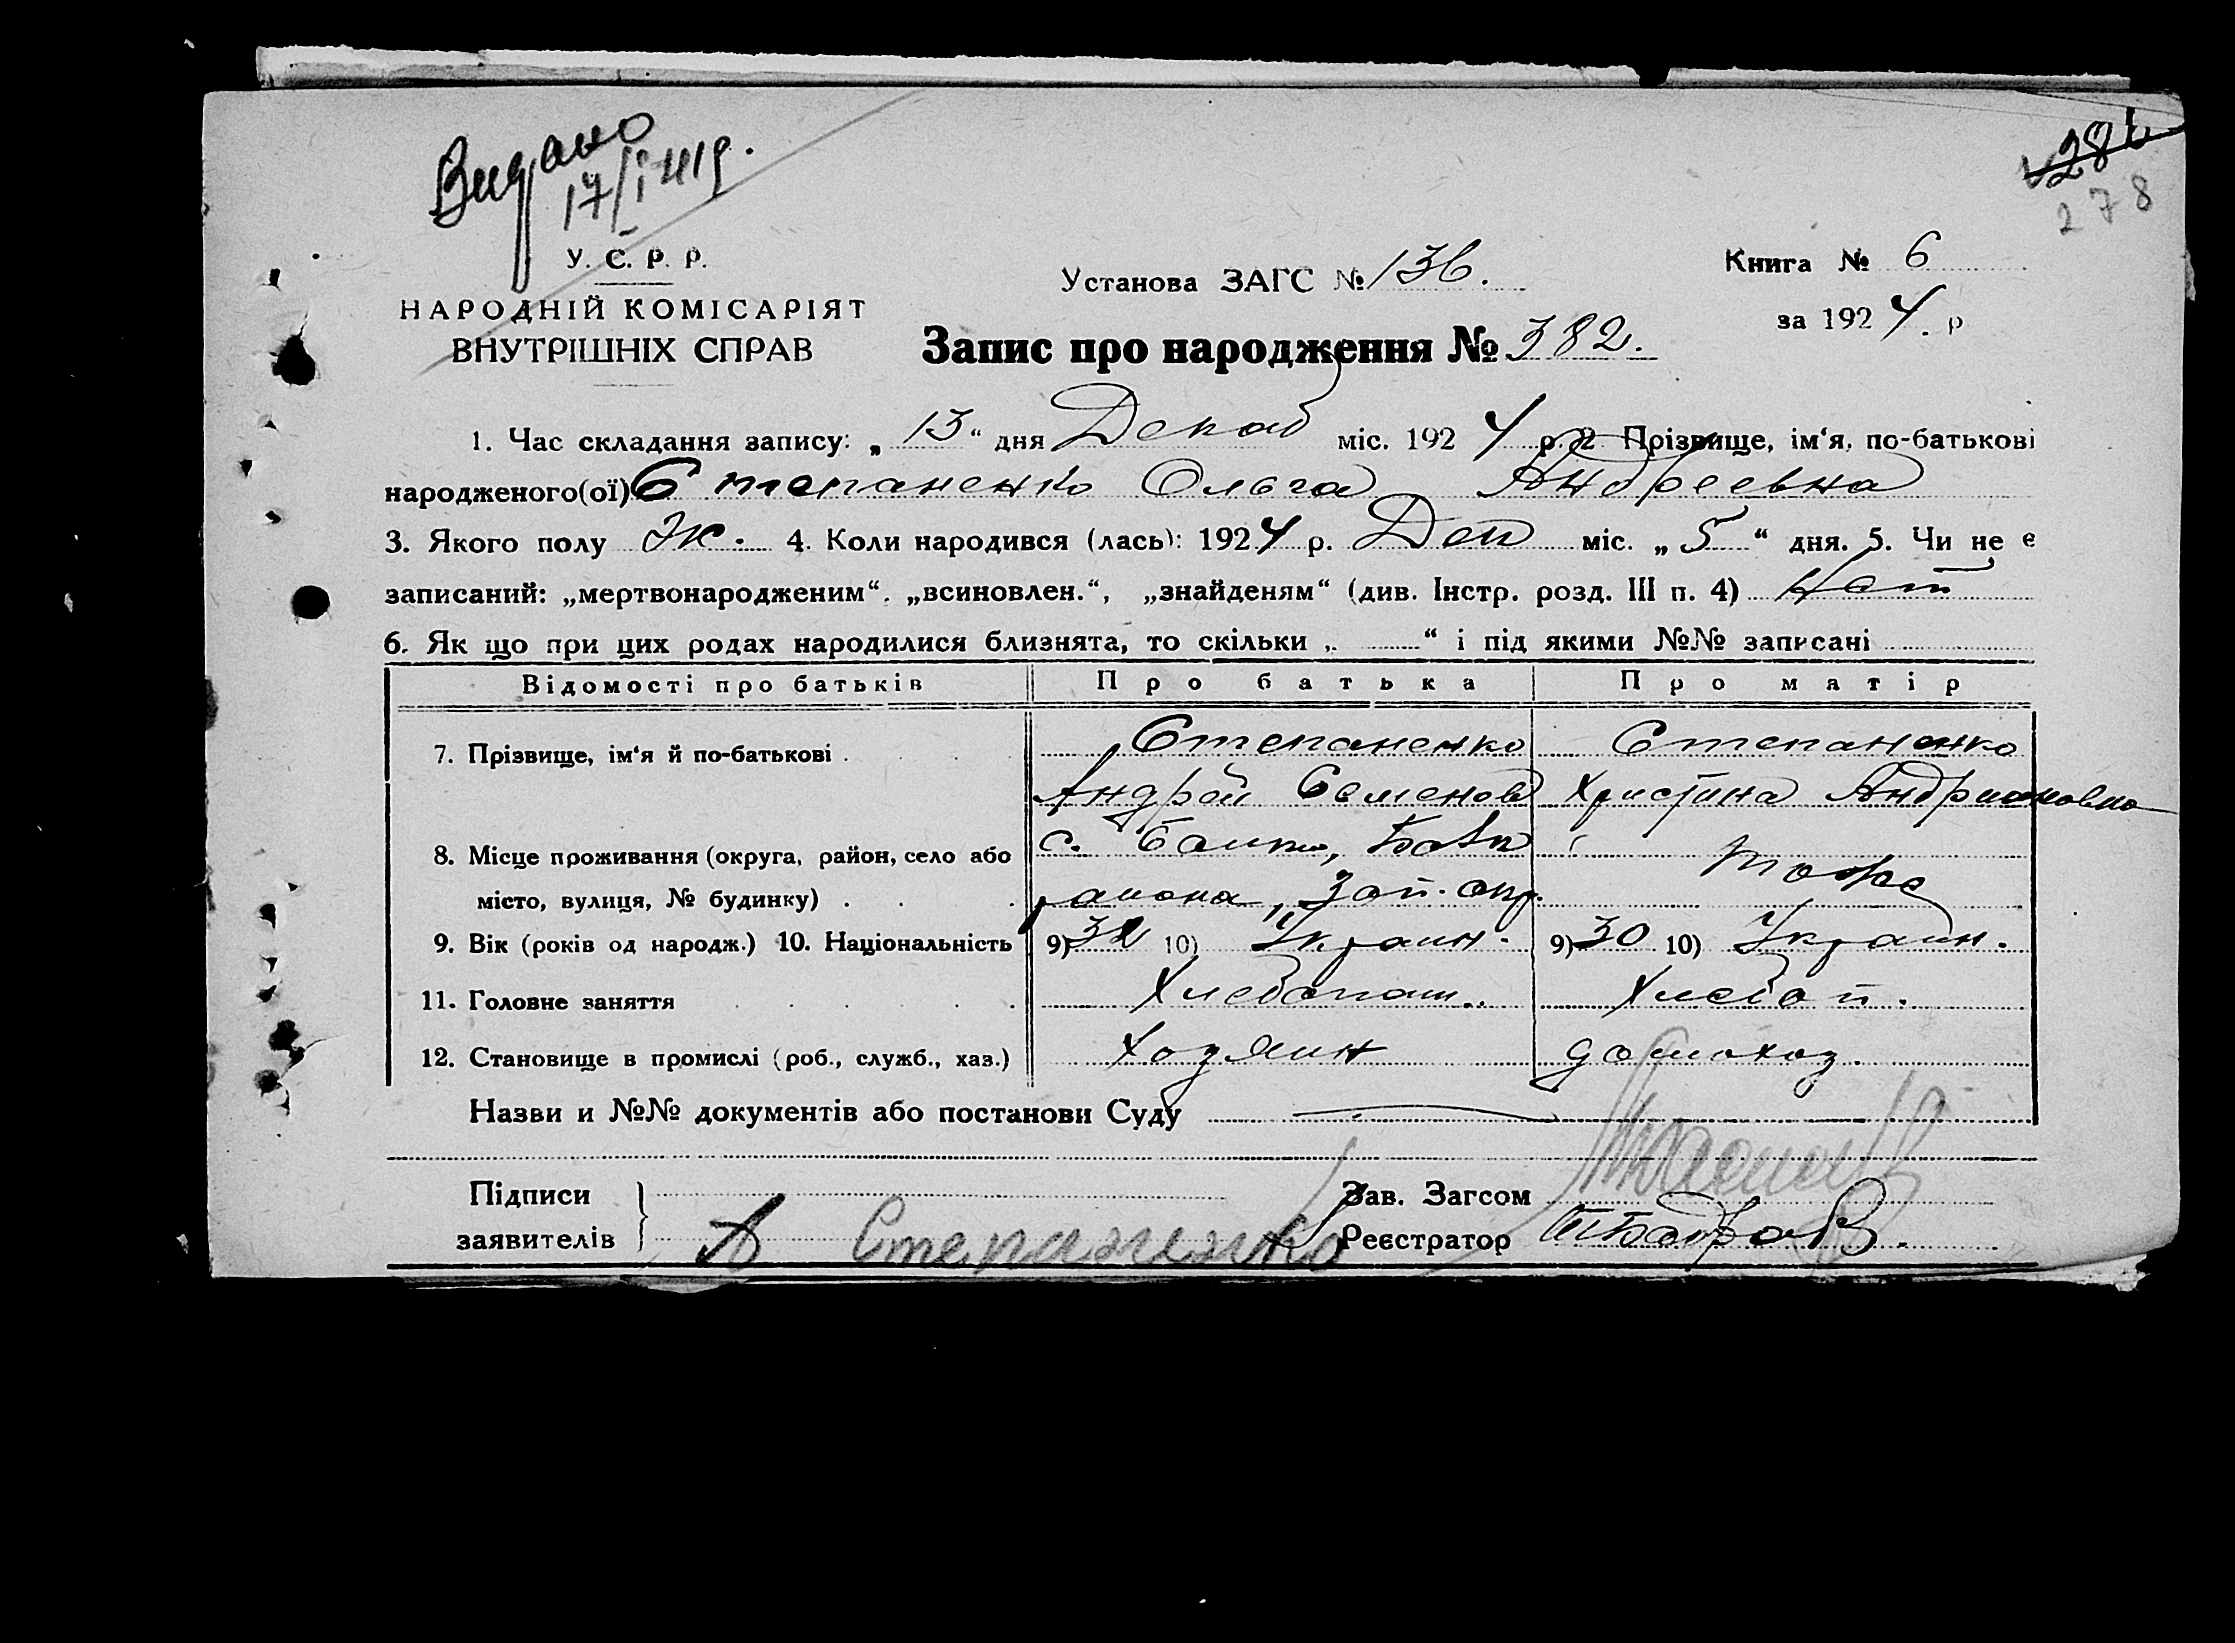 Видано
17/I 41 р.
286
278
У. С. Р. Р.
НАРОДНІЙ КОМІСАРІЯТ
ВНУТРІШНІХ СПРАВ
Установа ЗАГС № 136.
Книга № 6
за 1924. р
Запис про народження № 382.
1. Час складання запису: „13“ дня Декаб міс. 1924 р. 2. Прізвище, ім‘я, по-батькові
народженого(ої) Степаненко Ольга Андреевна
3. Якого полу Ж. 4. Коли народився (лась): 1924 р. Дек міс. „5“ дня. 5. Чи не є
записаний: „мертвонародженим“. „всиновлен.“, „знайденям“ (див. Інстр. розд. III п. 4) Нет
6. Як що при цих родах народилися близнята, то скільки „ “ і під якими №№ записані
Відомості про батьків Про батька Про матір
7. Прізвище, ім‘я й по-батькові . Степаненко Степаненко
Андрей Семенов Христина Андриановна
8. Місце проживання (округа, район, село або с. Балки, тоже
місто, вулиця, № будинку) . . . района, Зап. окр.
9. Вік (років од народж.) 10. Національність 9) 32 10) Украин. 9) 30 10) Украин.
11. Головне заняття Хлебопаш. Хлебоп.
12. Становище в промислі (роб., служб., хаз.) Хозяин домохоз.
Назви и №№ документів або постанови Суду
Підписи Зав. Загсом
заявителів А Степаненко Реєстратор